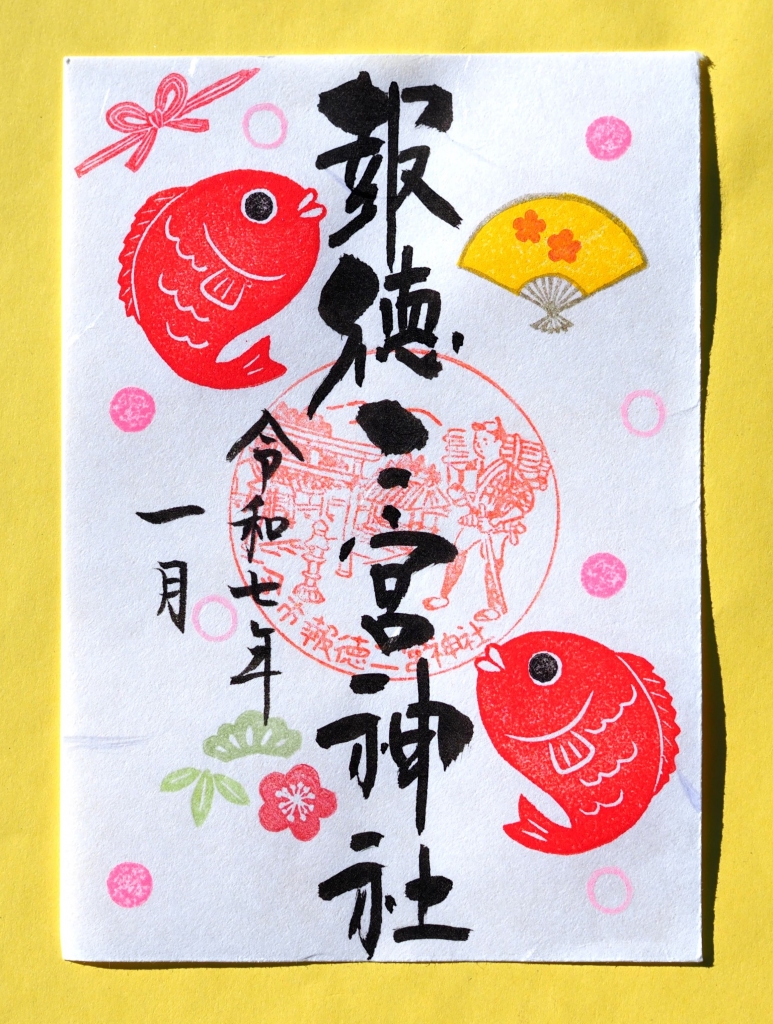 報徳二宮神社
令和七年
一月
市報徳二宮神社